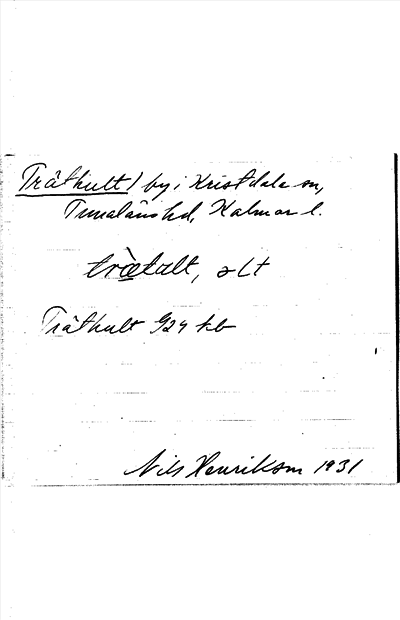 Tråthult) by i Kristdala sn,
Tunaläns hd, Kalmar l.
trætalt, olt
Tråthult G24 kb
Nils Henrikson 1931